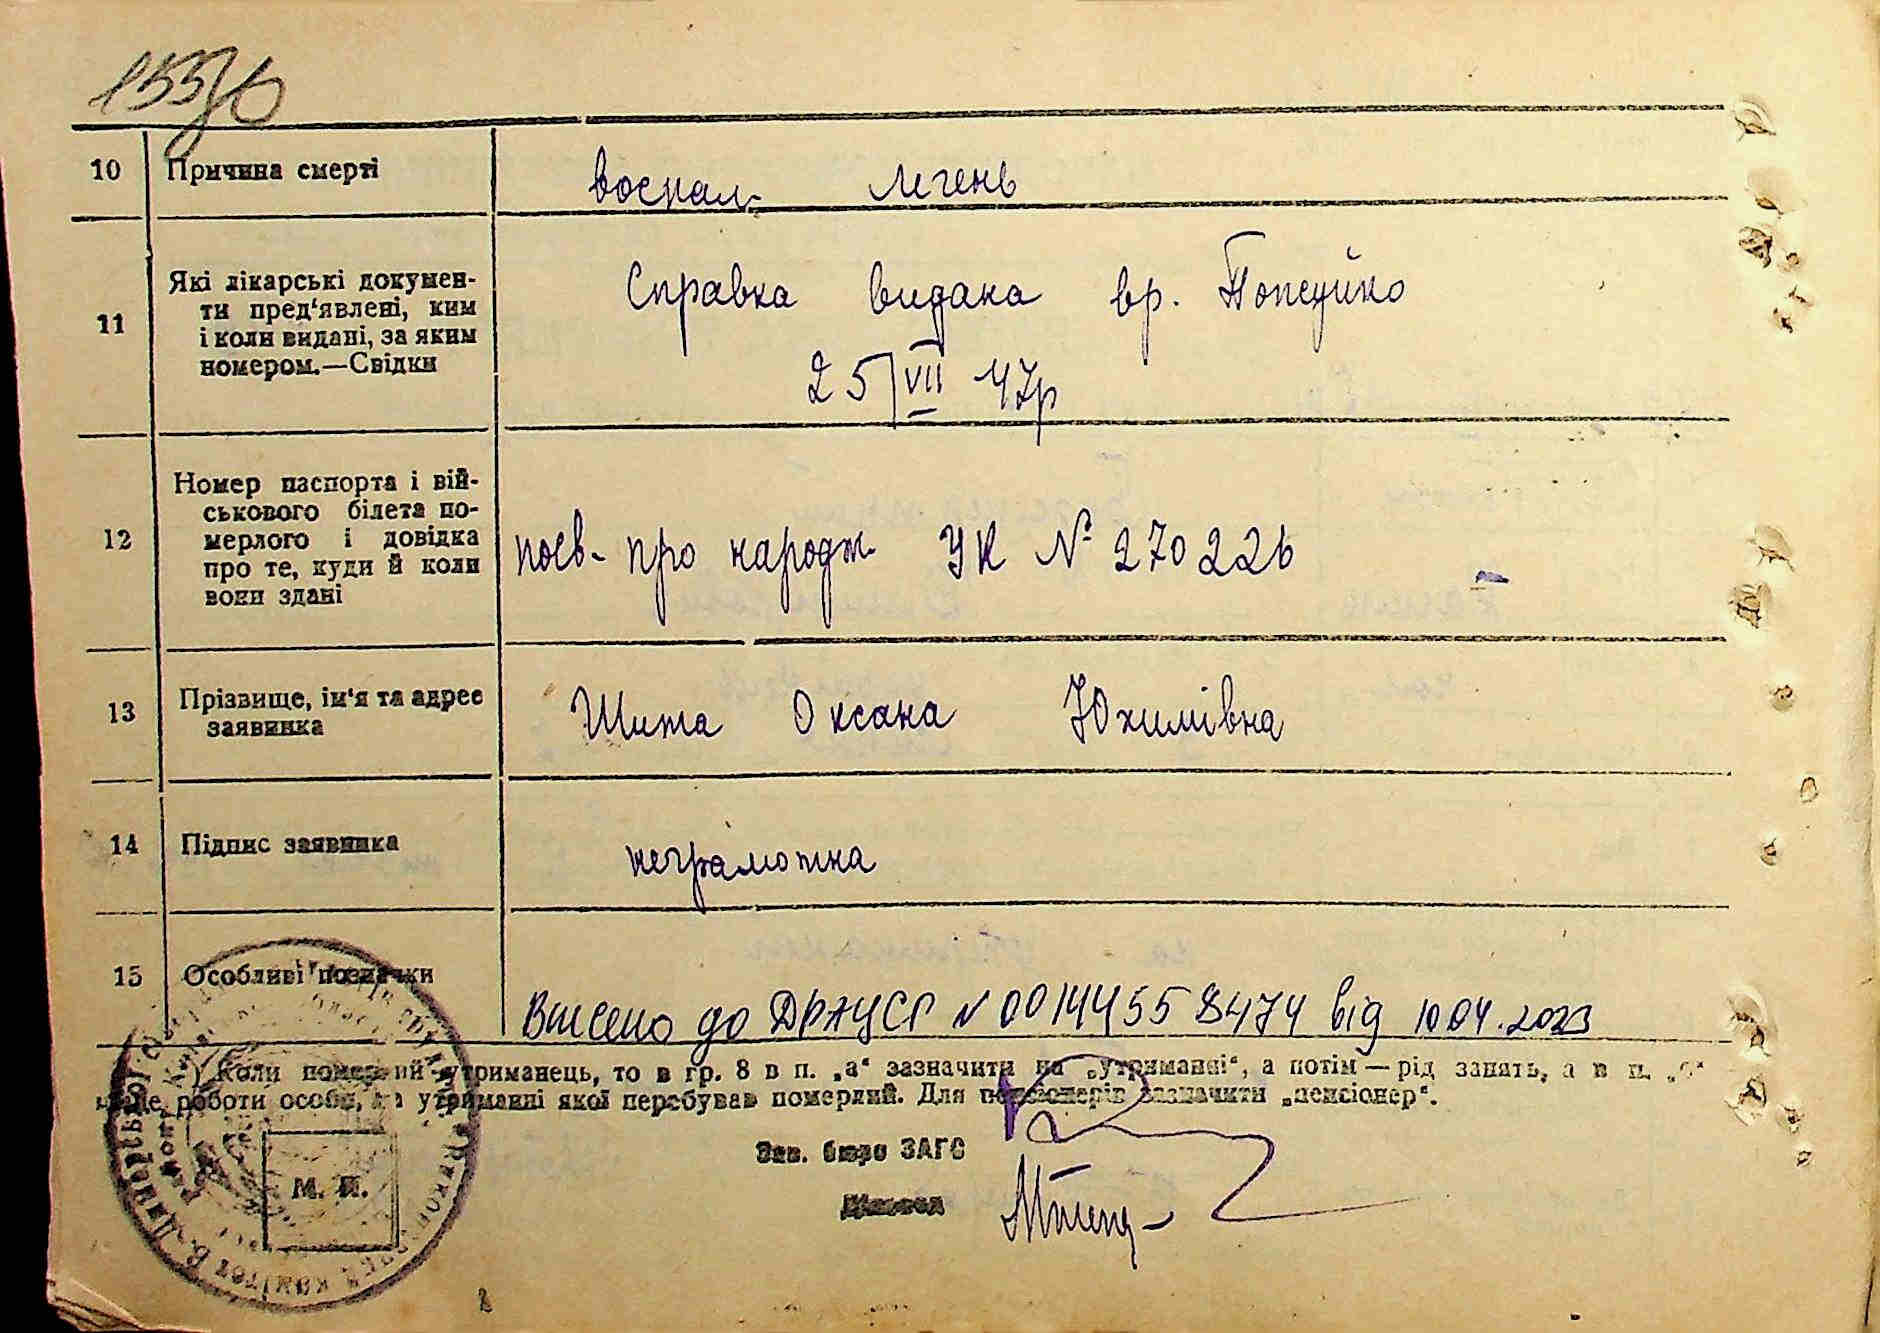 10 Причина смерті воспал. легень
11 Які лікарські докумен-
ти пред'явлені, ким
і коли видані, за яким
номером.—Свідки
Справка видана вр.
25/VII 47р
12 Номер паспорта і вій-
ськового білета по-
мерлого і довідка
про те, куди й коли
вони здані
посв. про народж. УК № 270226
13 Прізвище, ім'я та адрес
заявника
Шита Оксана Юхимівна
14 Підпис заявника неграмотна
15 Особливі позначки
Внесено до ДРАЦСГ № 00144558474 від 10.04.2023
Коли померлий утриманець, то в гр. 8 в п. „а“ зазначити на „утриманні“, а потім — рід занять, а в п.
роботи особи, на утриманні якої перебував померлий. Для пенсіонерів зазначити „пенсіонер“.
Зав. бюро ЗАГС
Діловод
М. П.